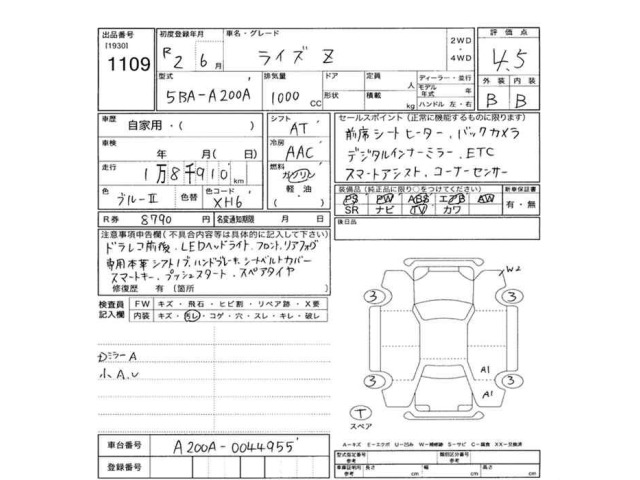 出品番号
[1930]
1109
初度登録年月
R2年6月
車名・グレード
ライズ Z
2WD
・
4WD
評価点
4.5
型式
5BA-A200A
排気量
1000 CC
ドア
形状
定員 人
積載 kg
ディーラー・並行
モデル年式 年
ハンドル 左・右
外装 内装
B B
車歴
自家用・( )
シフト
AT
セールスポイント(正常に機能するものに限ります)
前席シートヒーター、バックカメラ
デジタルインナーミラー、ETC
スマートアシスト、コーナーセンサー
車検
年 月( 日)
冷房
AAC
走行
1万8千910 km
燃料
ガソリン
軽油
( )
色
ブルーII
色替
色コード
XH6
装備品(純正品に限り○をつけてください)
PS PW ABS エアB AW
SR ナビ TV カワ
新車保証書
有・無
R券 8790 円
名変通知期限 月 日
後日品
注意事項申告欄(不具合内容等は具体的に記入して下さい)
ドラレコ前後、LEDヘッドライト、フロント,リアフォグ
専用本革シフトノブ,ハンドブレーキ,シートベルトカバー
スマートキー、プッシュスタート、スペアタイヤ
修復歴 有(箇所 )
検査員記入欄
FW キズ・飛石・ヒビ割・リペア跡・X要
内装 キズ・汚レ・コゲ・穴・スレ・キレ・破レ
DミラーA
小A、U
W2
3 3
A1
A1
3 3
T
スペア
車台番号
A200A-0044955
登録番号
A-キズ E-エクボ U-凹み W-補修跡 S-サビ C-腐食 XX-交換済
型式指定番号
参考
類別区分番号
参考
車庫証明用
参考
長さ cm
幅 cm
高さ cm